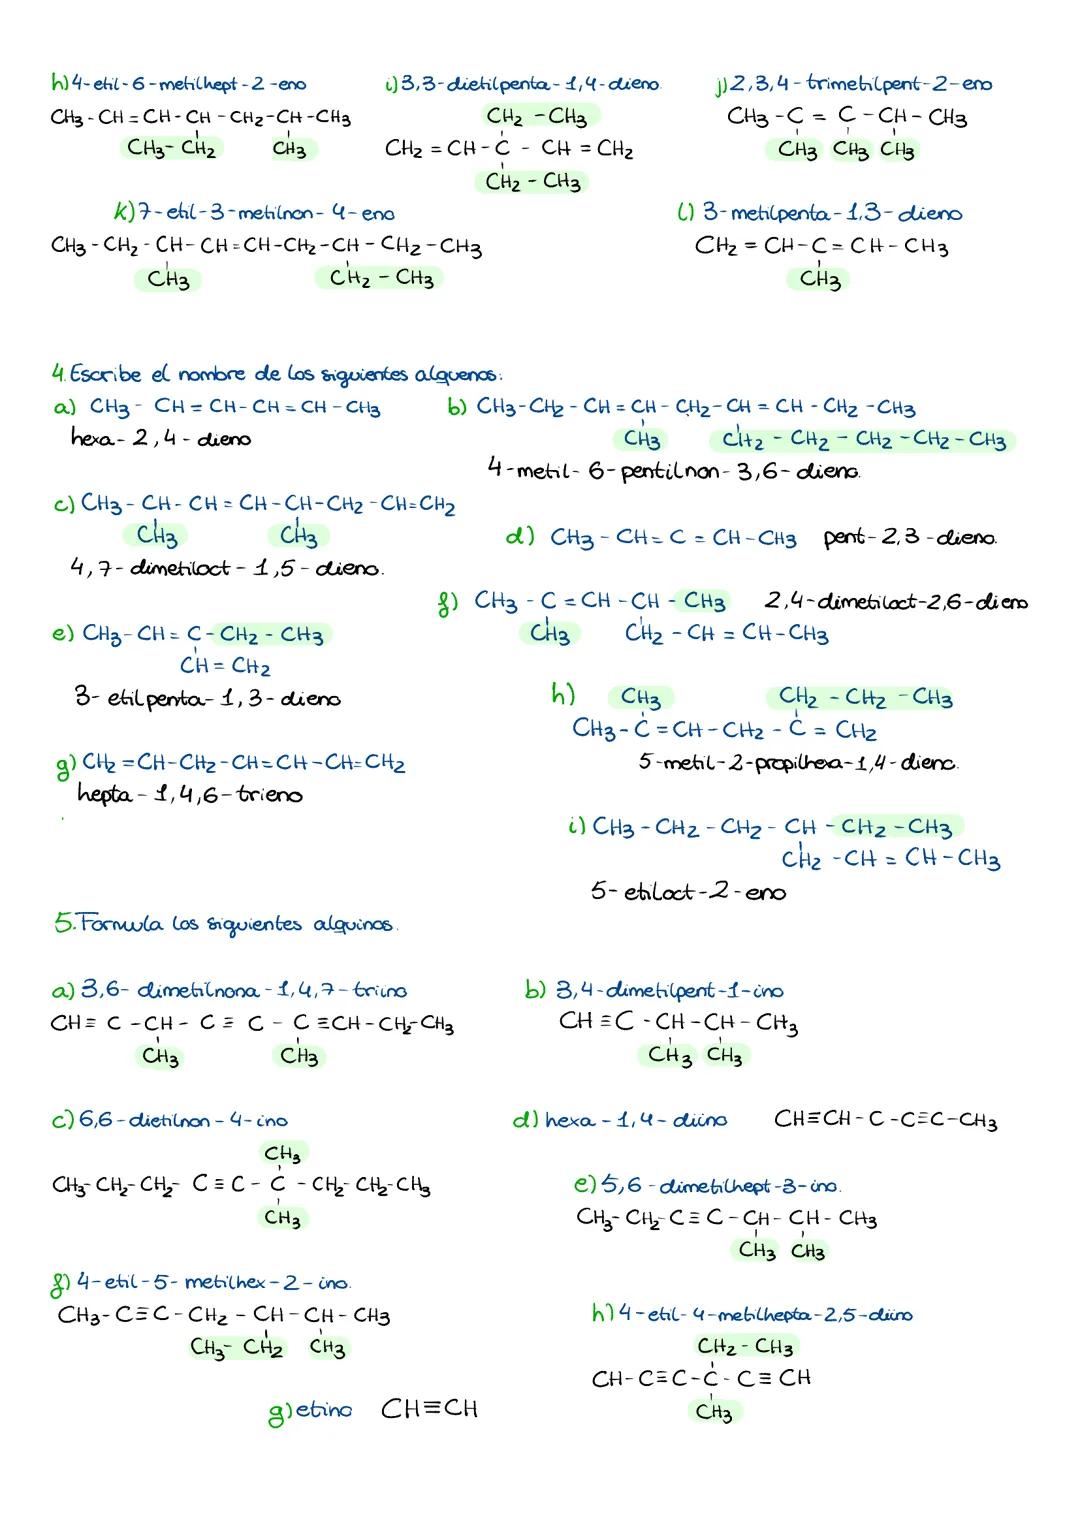 h) 4-etil-6-metilhept-2-eno
CH3-CH=CH-CH-CH2-CH-CH3
CH3-CH2 CH3
i) 3,3-dietilpenta-1,4-dieno.
CH2-CH3
CH2=CH-C-CH=CH2
CH2-CH3
j) 2,3,4-trimetilpent-2-eno
CH3-C=C-CH-CH3
CH3 CH3 CH3
k) 7-etil-3-metilnon-4-eno
CH3-CH2-CH-CH=CH-CH2-CH-CH2-CH3
CH3 CH2-CH3
l) 3-metilpenta-1,3-dieno
CH2=CH-C=CH-CH3
CH3
4. Escribe el nombre de los siguientes alquenos:
a) CH3-CH=CH-CH=CH-CH3
hexa-2,4-dieno
b) CH3-CH2-CH=CH-CH2-CH=CH-CH2-CH3
CH3 CH2-CH2-CH2-CH2-CH3
4-metil-6-pentilnon-3,6-dieno.
c) CH3-CH-CH=CH-CH-CH2-CH=CH2
CH3 CH3
4,7-dimetiloct-1,5-dieno.
d) CH3-CH=C=CH-CH3 pent-2,3-dieno.
f) CH3-C=CH-CH-CH3 2,4-dimetiloct-2,6-dieno
CH3 CH2-CH=CH-CH3
e) CH3-CH=C-CH2-CH3
CH=CH2
3-etilpenta-1,3-dieno
h) CH3 CH2-CH2-CH3
CH3-C=CH-CH2-C=CH2
5-metil-2-propilhexa-1,4-dieno.
g) CH2=CH-CH2-CH=CH-CH=CH2
hepta-1,4,6-trieno
i) CH3-CH2-CH2-CH-CH2-CH3
CH2-CH=CH-CH3
5-etiloct-2-eno
5. Formula los siguientes alquinos.
a) 3,6-dimetilnona-1,4,7-triino
CH≡C-CH-C≡C-C≡CH-CH2-CH3
CH3 CH3
b) 3,4-dimetilpent-1-ino
CH≡C-CH-CH-CH3
CH3 CH3
c) 6,6-dietilnon-4-ino
CH3
CH3-CH2-CH2-C≡C-C-CH2-CH2-CH3
CH3
d) hexa-1,4-diino CH≡CH-C-C≡C-CH3
e) 5,6-dimetilhept-3-ino.
CH3-CH2-C≡C-CH-CH-CH3
CH3 CH3
f) 4-etil-5-metilhex-2-ino.
CH3-C≡C-CH2-CH-CH-CH3
CH3-CH2 CH3
h) 4-etil-4-metilhepta-2,5-diino
CH2-CH3
CH-C≡C-C-C≡CH
CH3
g) etino CH≡CH